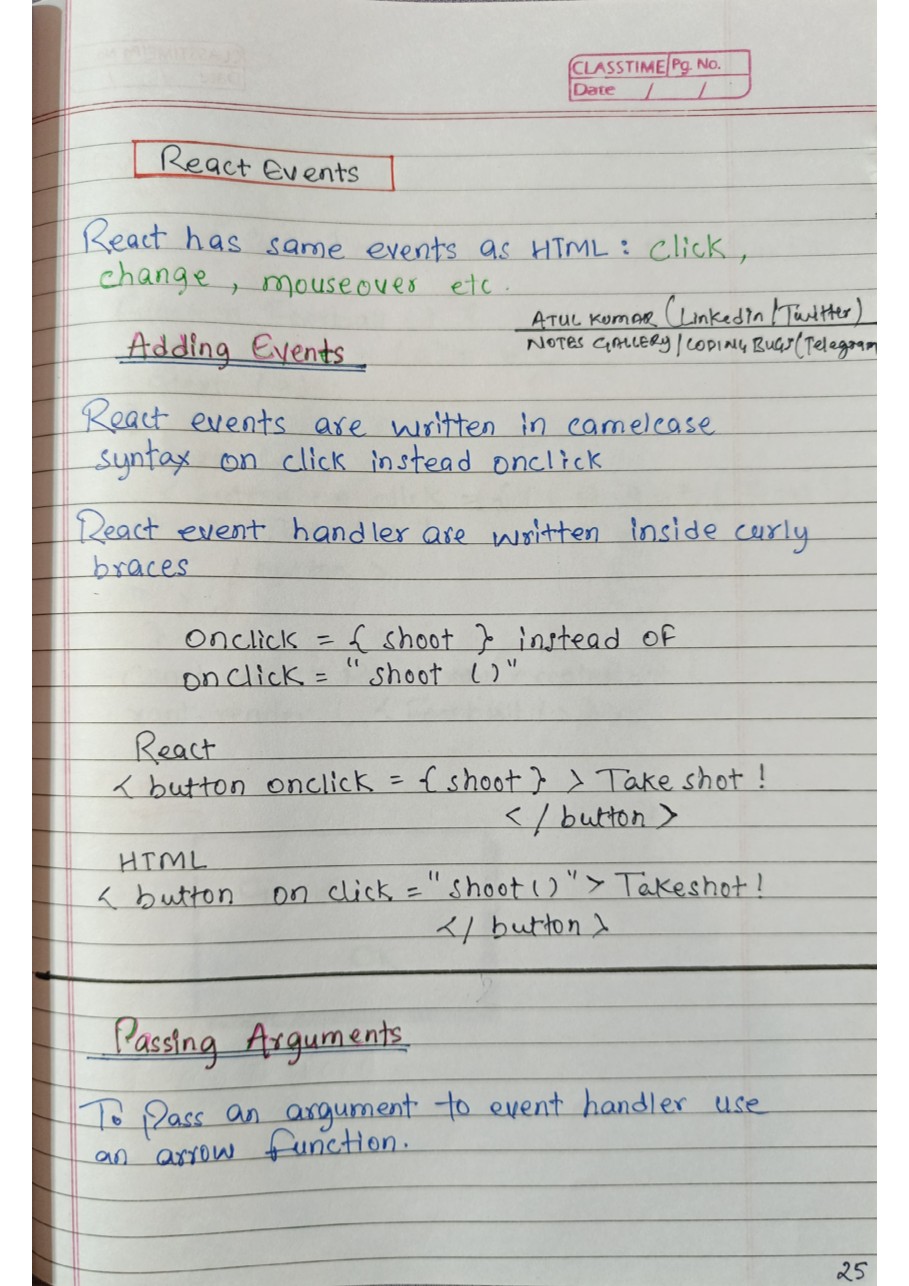 CLASSTIME Pg. No.
Date / /
React Events
React has same events as HTML : click ,
change , mouseover etc .
ATUL KUMAR (Linkedin / Twitter)
Adding Events
NOTES GALLERY / CODING BUGS (Telegram
React events are written in camelcase
syntax on click instead onclick
React event handler are written inside curly
braces
onclick = { shoot } instead of
onclick = "shoot ()"
React
< button onclick = { shoot } > Take shot !
< / button >
HTML
< button on click = "shoot ()" > Takeshot !
< / button >
Passing Arguments
To Pass an argument to event handler use
an arrow function.
25